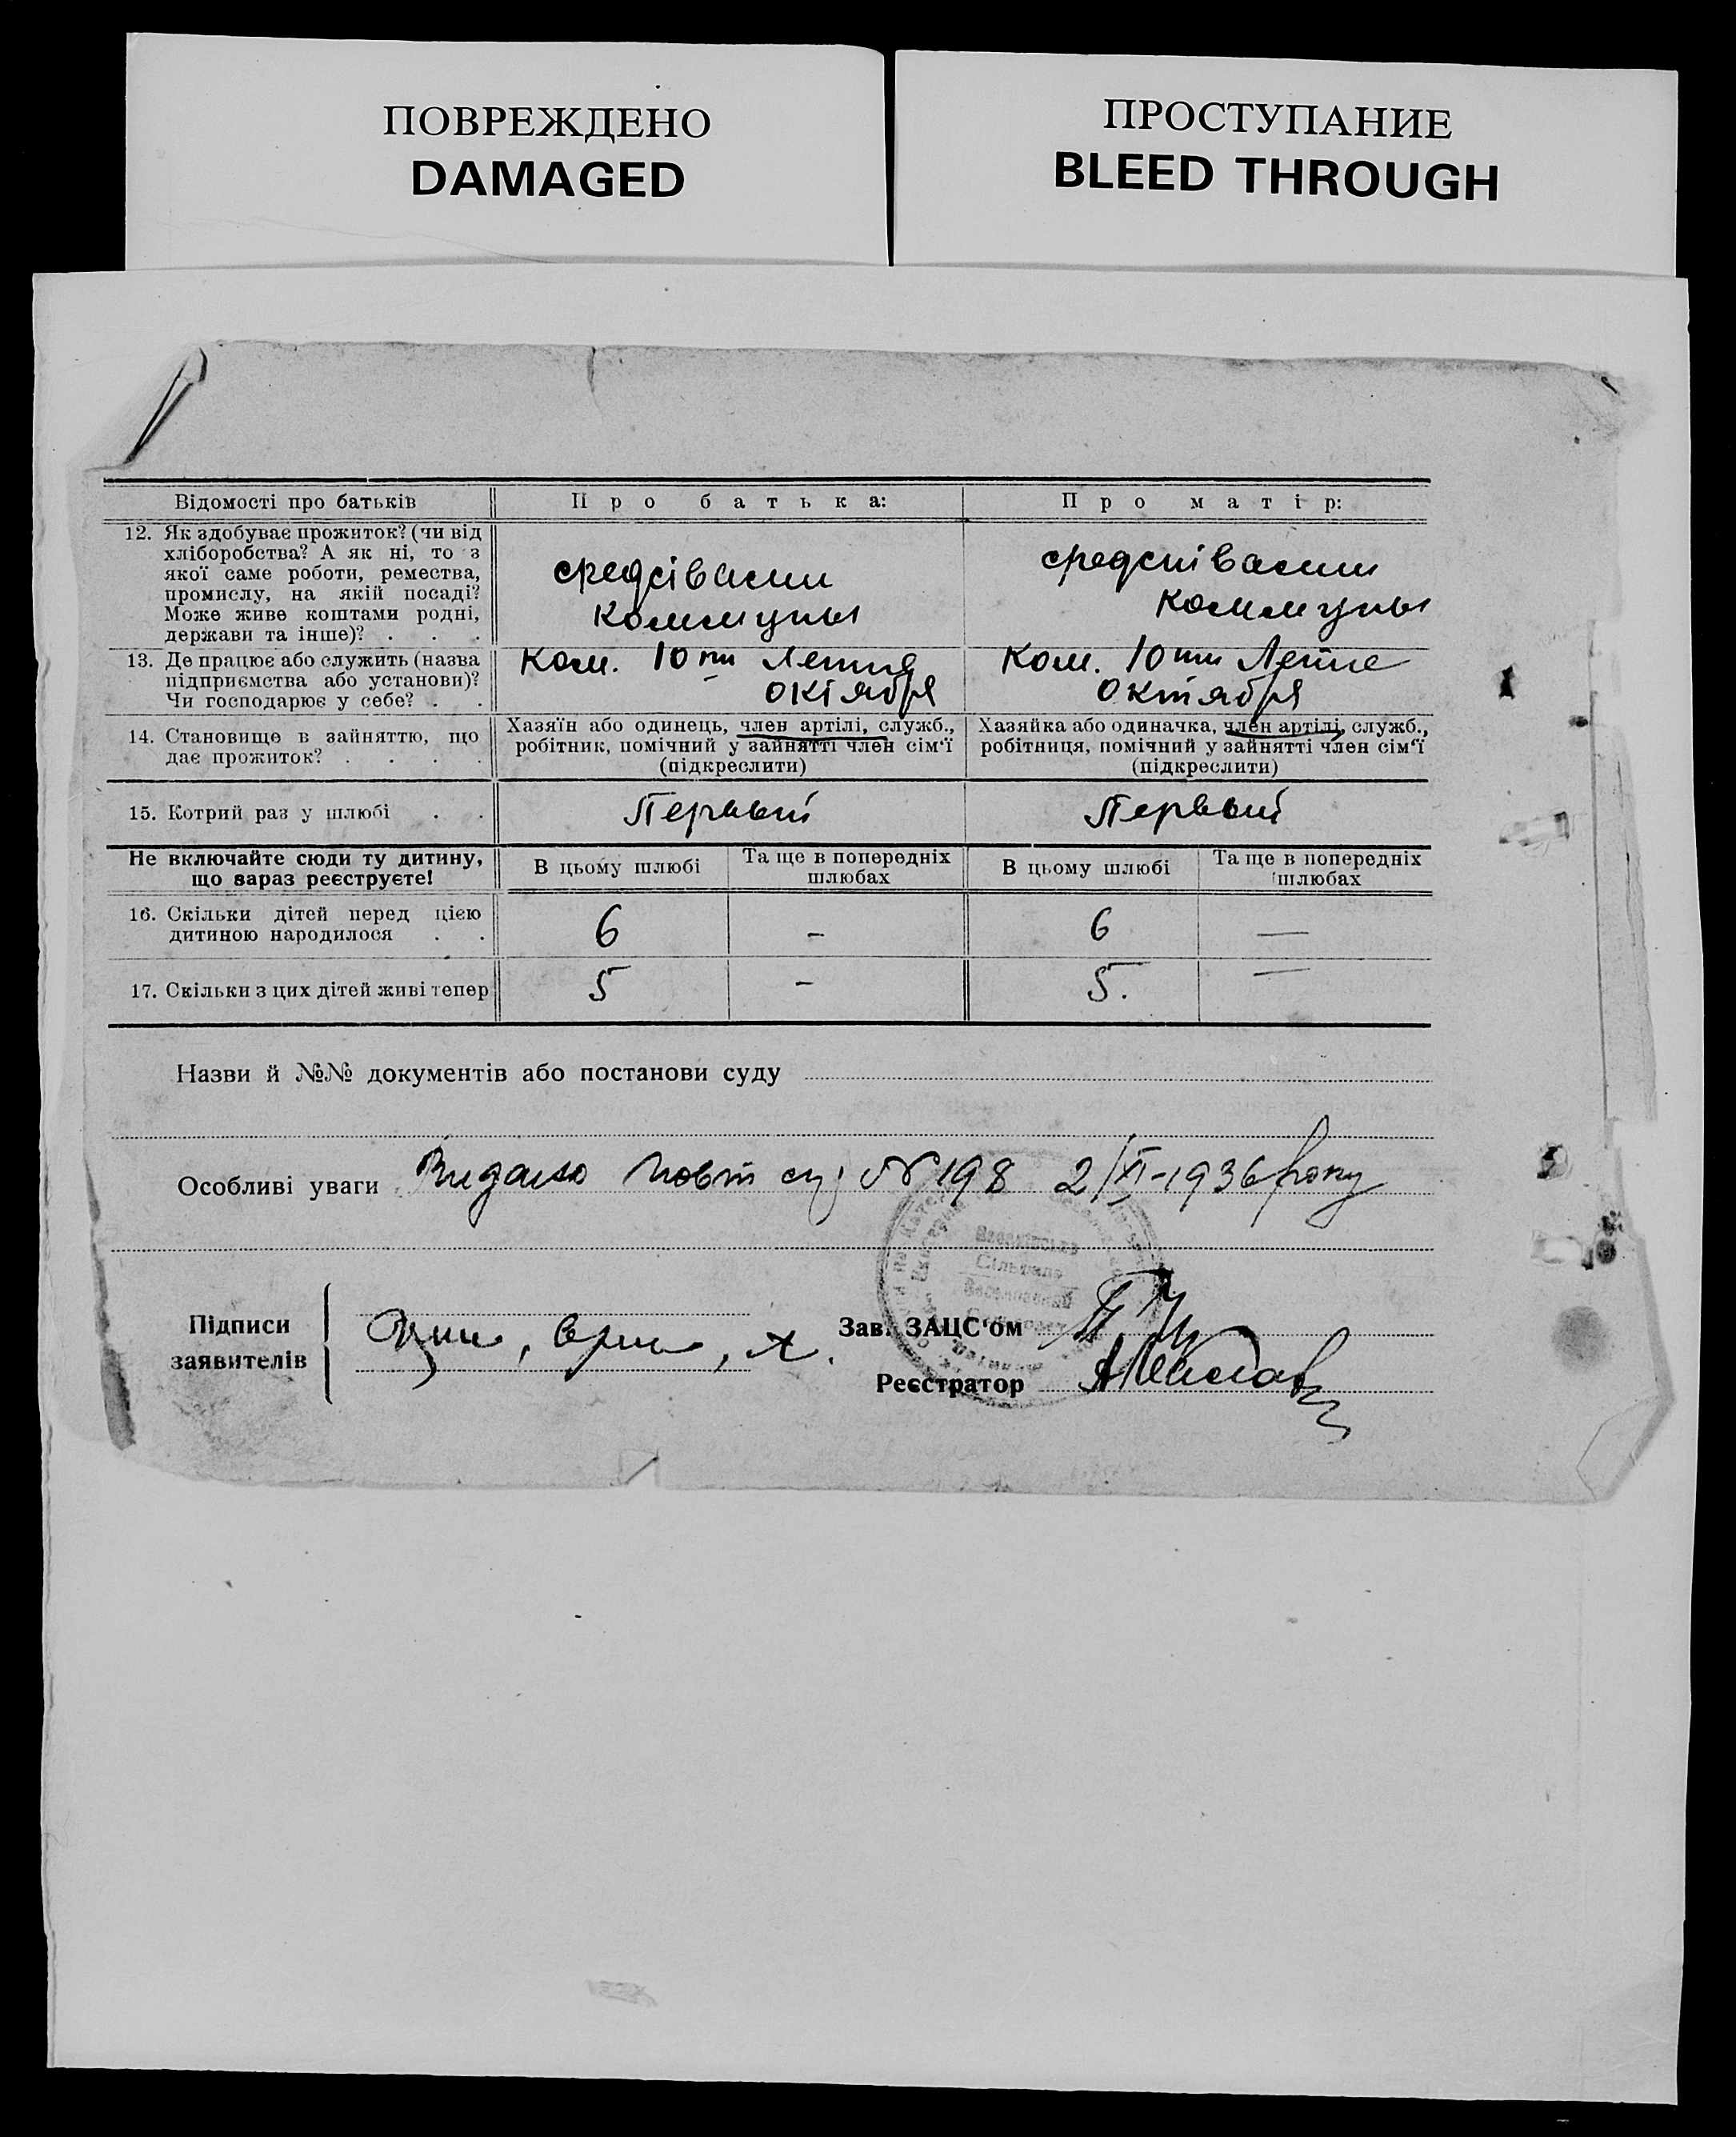 ПОВРЕЖДЕНО
DAMAGED
ПРОСТУПАНИЕ
BLEED THROUGH
Відомості про батьків
Про батька:
Про матір:
12. Як здобуває прожиток? (чи від
хліборобства? А як ні, то з
якої саме роботи, ремества,
промислу, на якій посаді?
Може живе коштами родні,
держави та інше)? . . .
средсівами
коммуны
средствами
коммуны
13. Де працює або служить (назва
підприємства або установи)?
Чи господарює у себе? . .
Ком. 10ти Летия
Октября
Ком. 10ти Летие
Октября
14. Становище в зайняттю, що
дає прожиток? . . . .
Хазяїн або одинець, член артілі, служб.,
робітник, помічний у зайнятті член сім‘ї
(підкреслити)
Хазяйка або одиначка, член артілі, служб.,
робітниця, помічний у зайнятті член сім‘ї
(підкреслити)
15. Котрий раз у шлюбі . .
Первый
Первый
Не включайте сюди ту дитину,
що зараз реєструєте!
В цьому шлюбі
Та ще в попередніх
шлюбах
В цьому шлюбі
Та ще в попередніх
шлюбах
16. Скільки дітей перед цією
дитиною народилося . .
6
-
6
—
17. Скільки з цих дітей живі тепер
5
-
5.
—
Назви й №№ документів або постанови суду
Особливі уваги Видано повт № 198 2/XI-1936 року
Сільрада
Підписи
заявителів
Зав. ЗАЦС‘ом
Реєстратор